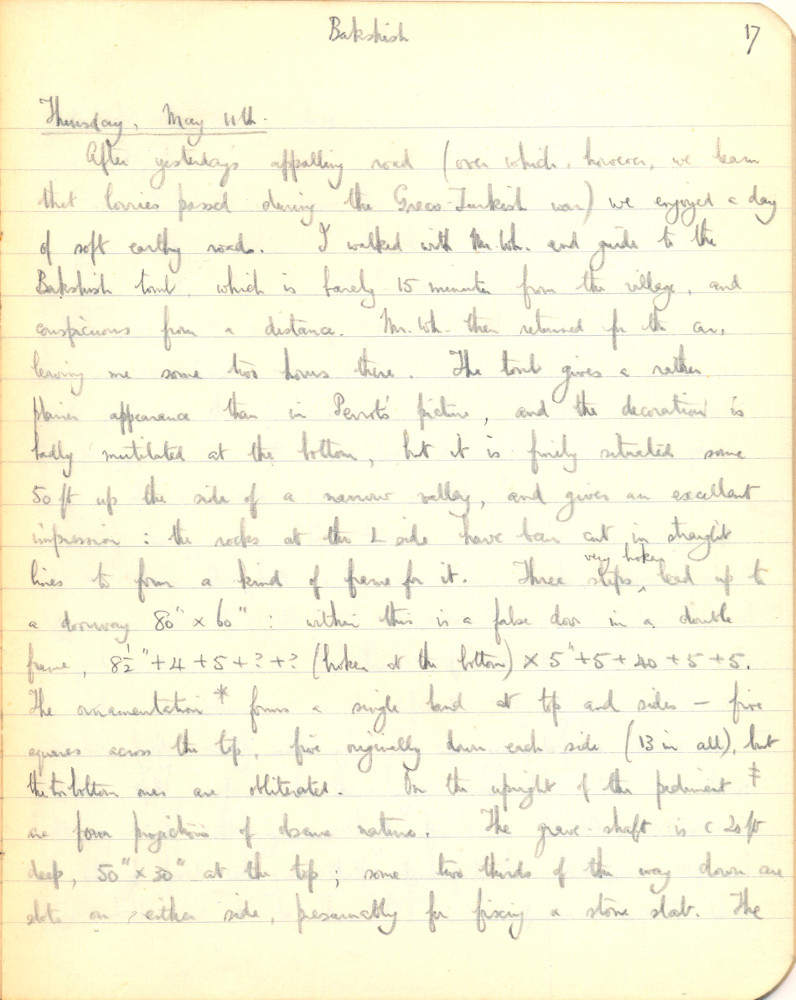 Bakshish
17
Thursday, May 11th.
After yesterday's appalling road (over which, however, we learn
that lorries passed during the Greco-Turkish war) we enjoyed a day
of soft earthy roads. I walked with Mr. Wh. and guide to the
Bakshish tomb, which is barely 15 minutes from the village, and
conspicuous from a distance. Mr. Wh. then returned for the car,
leaving me some two hours there. The tomb gives a rather
plainer appearance than in Perrot's picture, and the decoration is
badly mutilated at the bottom, but it is finely situated some
50 ft up the side of a narrow valley, and gives an excellent
impression : the rocks at the L side have been cut in straight
lines to form a kind of frame for it. Three steps, very broken, lead up to
a doorway 80" x 60" : within this is a false door in a double
frame, 8½" + 4 + 5 + ? + ? (broken at the bottom) x 5" + 5 + 40 + 5 + 5.
The ornamentation * forms a single band at top and sides – five
squares across the top, five originally down each side (13 in all), but
the two bottom ones are obliterated. On the upright of the pediment ‡
are four projections of obscure nature. The grave-shaft is c 20 ft
deep, 50" x 30" at the top ; some two thirds of the way down are
slots on either side, presumably for fixing a stone slab. The